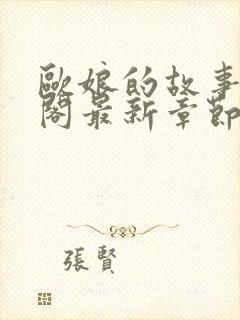 歐娘的故事
閣最新章節
張賢